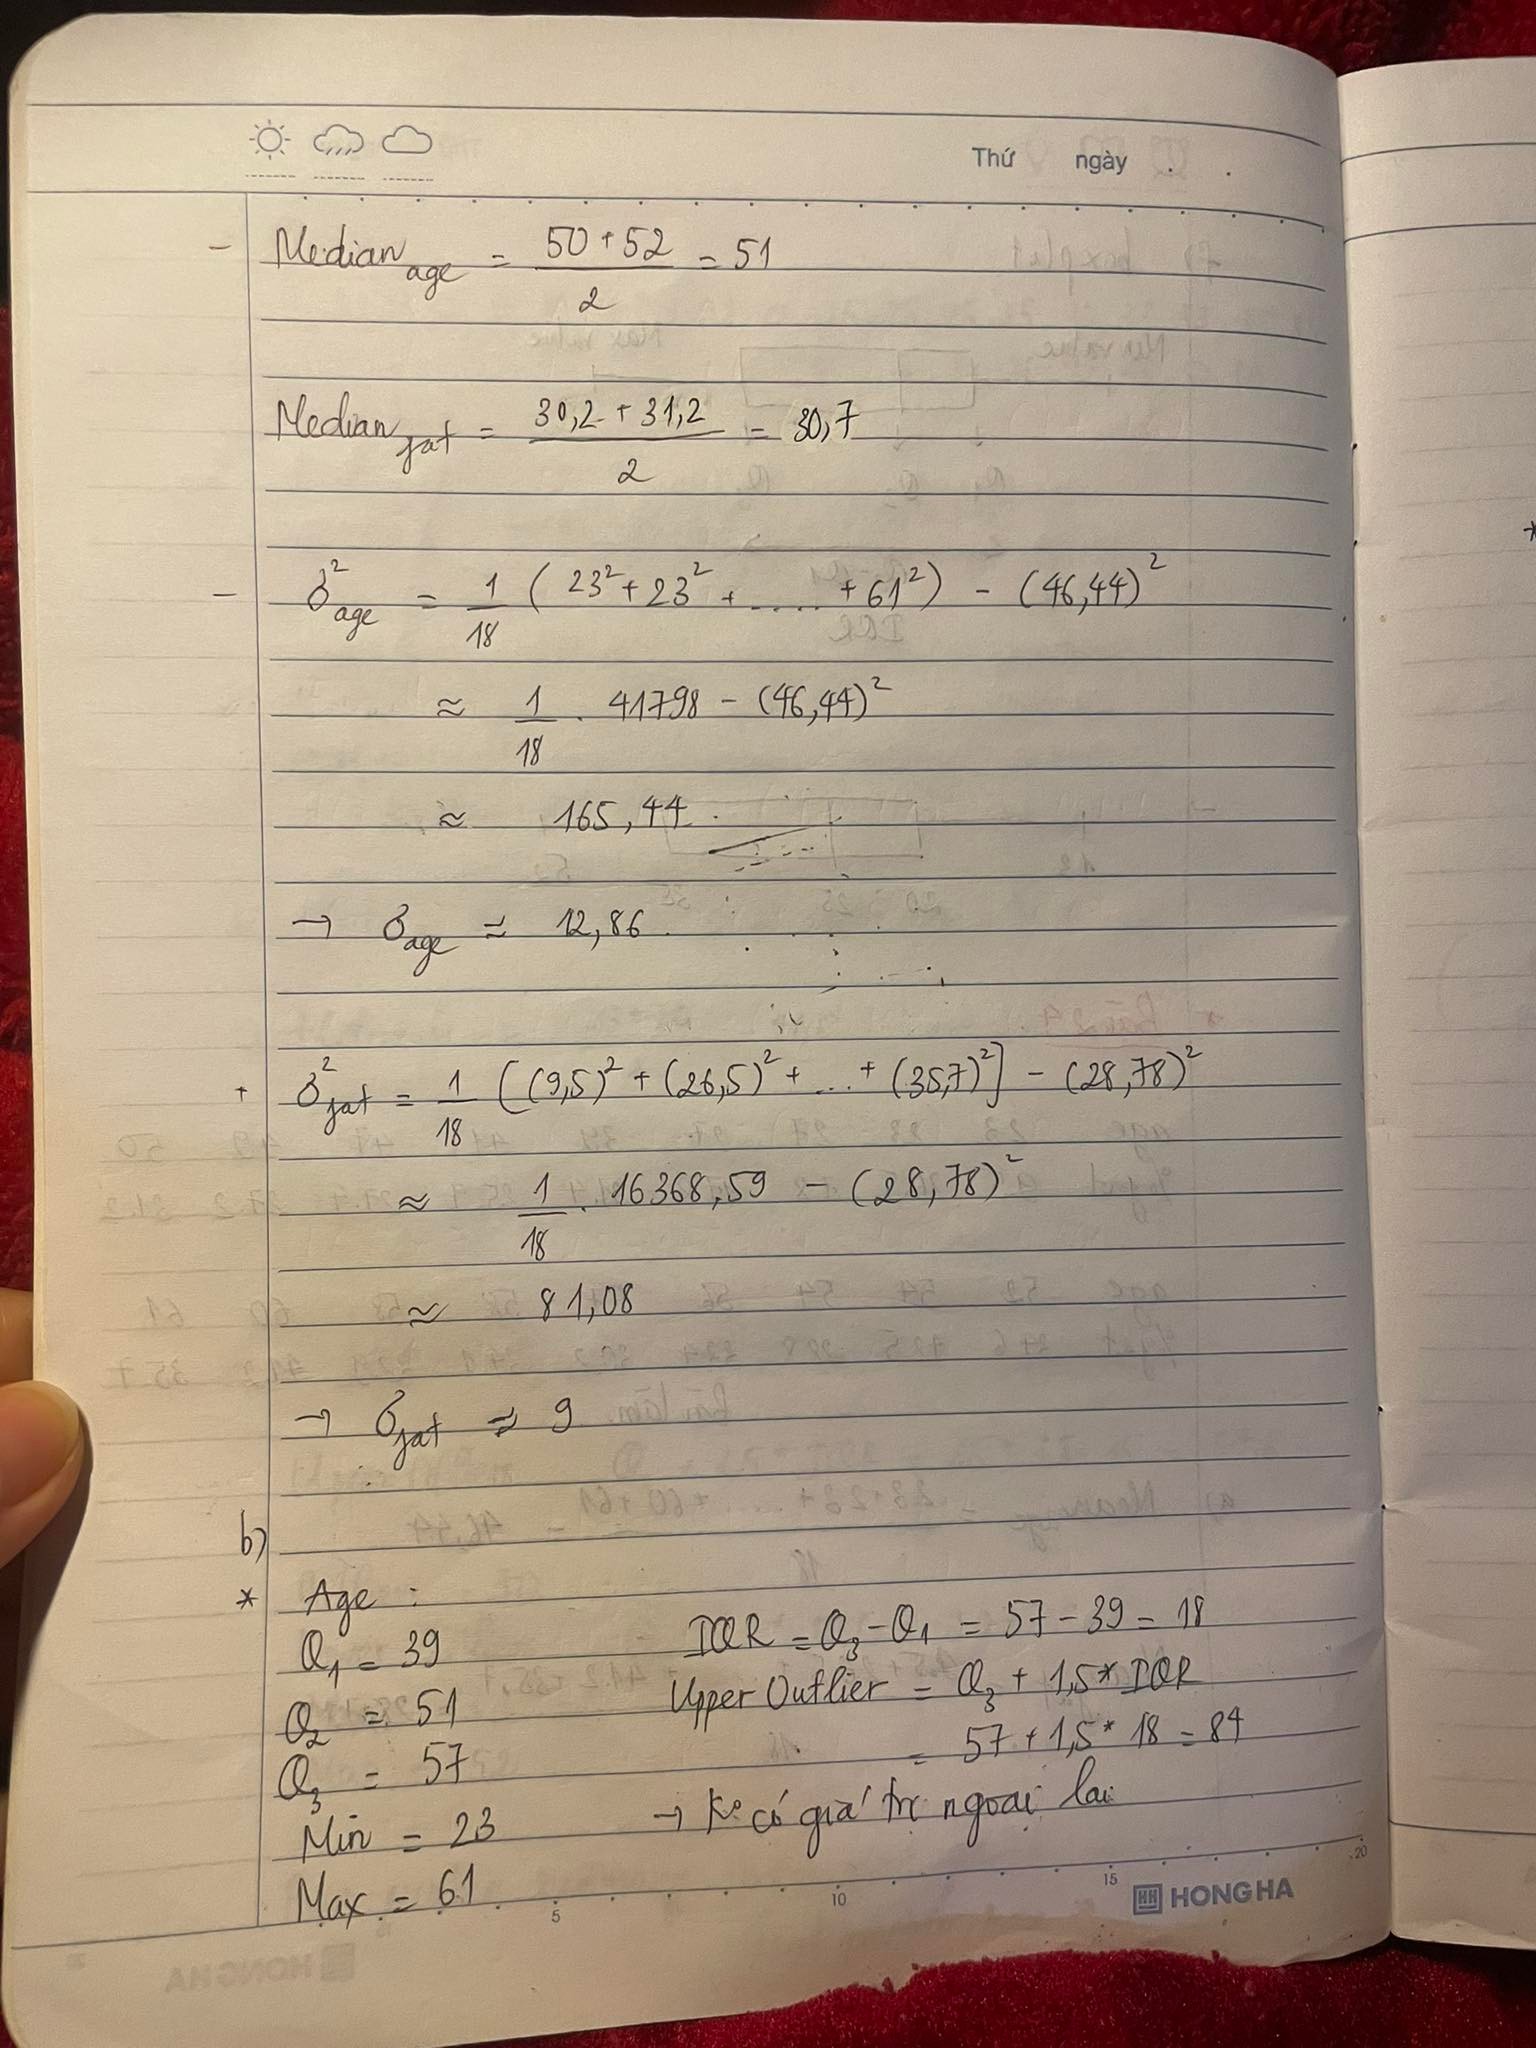 Thứ ngày
- Median age = (50 + 52) / 2 = 51
Median fat = (30,2 + 31,2) / 2 = 30,7
- σ²age = 1/18 (23² + 23² + ..... + 61²) - (46,44)²
≈ 1/18 . 41798 - (46,44)²
≈ 165,44
→ σage ≈ 12,86
+ σ²fat = 1/18 [(9,5)² + (26,5)² + ... + (35,7)²] - (28,78)²
≈ 1/18 . 16368,59 - (28,78)²
≈ 81,08
→ σfat ≈ 9
b)
* Age :
Q1 = 39 IQR = Q3 - Q1 = 57 - 39 = 18
Q2 = 51 Upper Outlier = Q3 + 1,5* IQR
Q3 = 57 = 57 + 1,5* 18 = 84
Min = 23 → K° có giá trị ngoại lai
Max = 61
5 10 15 20
HH HONG HA